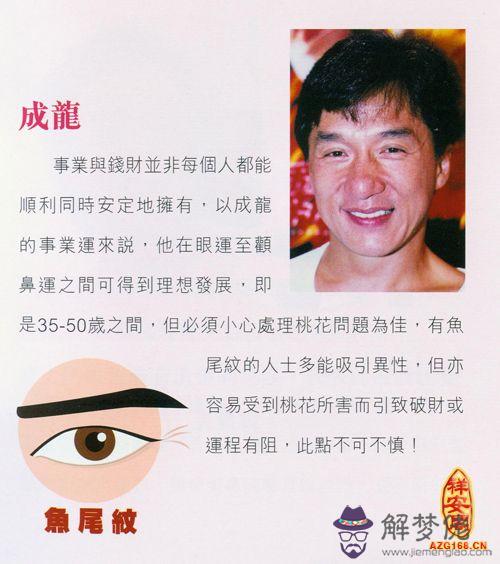 成龍
事業與錢財並非每個人都能
順利同時安定地擁有，以成龍
的事業運來說，他在眼運至顴
鼻運之間可得到理想發展，即
是35-50歲之間，但必須小心處理桃花問題為佳，有魚
尾紋的人士多能吸引異性，但亦
容易受到桃花所害而引致破財或
運程有阻，此點不可不慎！
魚尾紋
祥安
AZG168.CN
解梦佬
www.jiemenglao.com